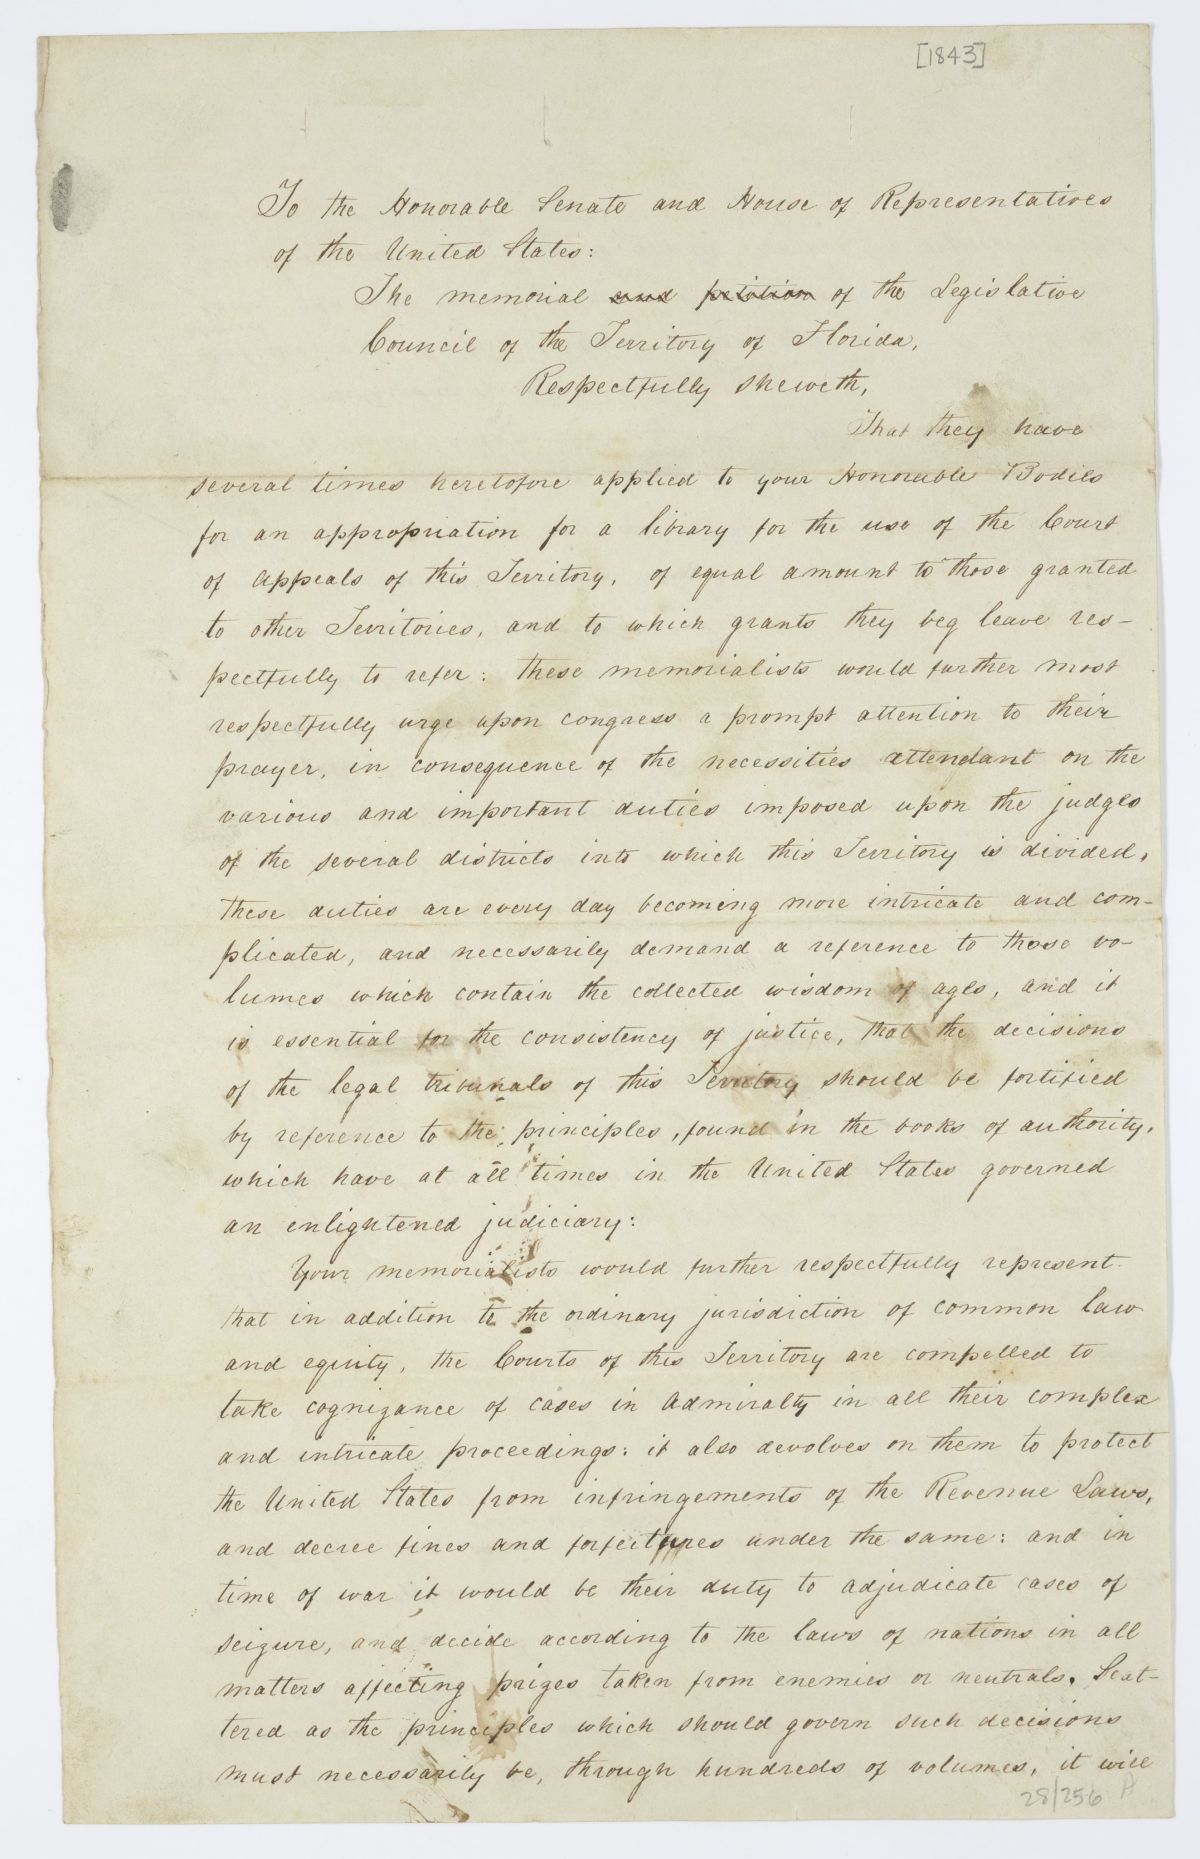 [1843]
To the Honorable Senate and House of Representatives
of the United States:
The memorial and petition of the Legislative
Council of the Territory of Florida,
Respectfully sheweth,
That they have
several times heretofore applied to your Honorable Bodies
for an appropriation for a library for the use of the Court
of Appeals of this Territory, of equal amount to those granted
to other Territories, and to which grants they beg leave res-
pectfully to refer: these memorialists would further most
respectfully urge upon congress a prompt attention to their
prayer, in consequence of the necessities attendant on the
various and important duties imposed upon the judges
of the several districts into which this Territory is divided,
these duties are every day becoming more intricate and com-
plicated, and necessarily demand a reference to those vo-
lumes which contain the collected wisdom of ages, and it
is essential for the consistency of justice, that the decisions
of the legal tribunals of this Territory should be fortified
by reference to the principles, found in the books of authority,
which have at all times in the United States governed
an enlightened judiciary:
Your memorialists would further respectfully represent
that in addition to the ordinary jurisdiction of common law
and equity, the Courts of this Territory are compelled to
take cognizance of cases in Admiralty in all their complex
and intricate proceedings: it also devolves on them to protect
the United States from infringements of the Revenue Laws,
and decree fines and forfeitures under the same: and in
time of war it would be their duty to adjudicate cases of
seizure, and decide according to the laws of nations in all
matters affecting prizes taken from enemies or neutrals. Scat-
tered as the principles which should govern such decisions
must necessarily be, through hundreds of volumes, it will
28/256 A